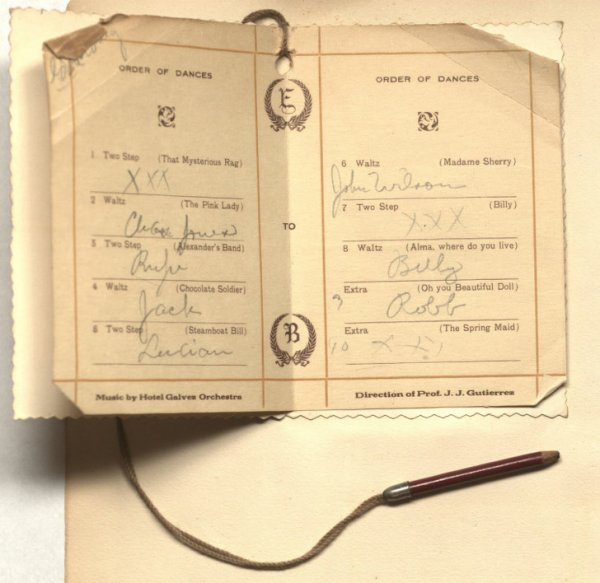 ORDER OF DANCES
1 Two Step (That Mysterious Rag)
XXX
2 Waltz (The Pink Lady)
Jones
5 Two Step (Alexander's Band)
Rufus
4 Waltz (Chocolate Soldier)
Jack
6 Two Step (Steamboat Bill)
Lucian
Music by Hotel Galvez Orchestra
E
TO
B
ORDER OF DANCES
6 Waltz (Madame Sherry)
John Wilson
7 Two Step (Billy)
X.XX
8 Waltz (Alma, where do you live)
Billy
Extra (Oh you Beautiful Doll)
9 Robb
Extra (The Spring Maid)
10 XXX
Direction of Prof. J. J. Gutierrez